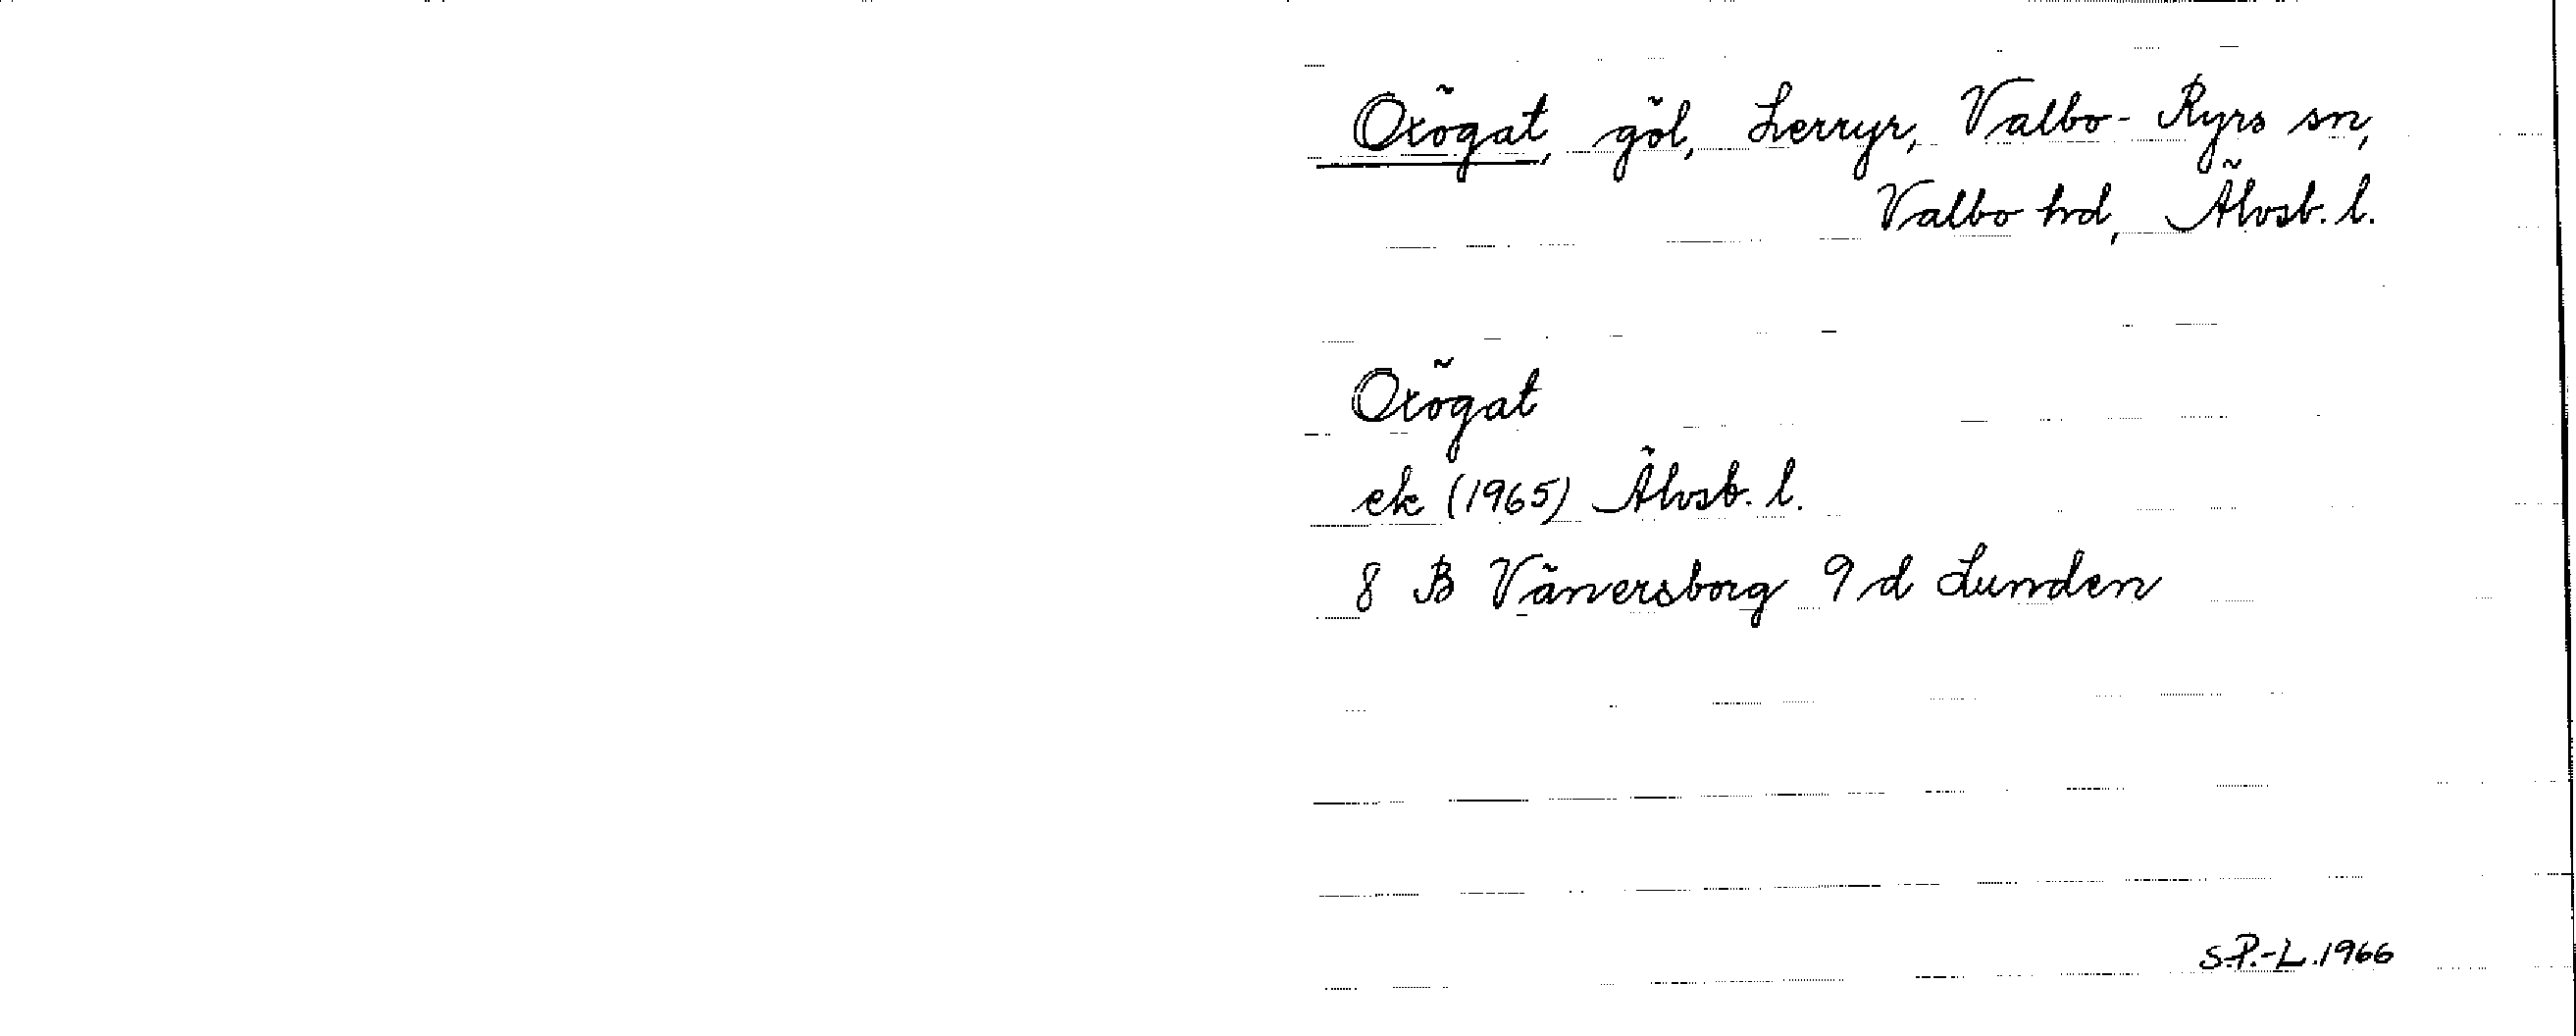 Oxögat, göl, Lerryr, Valbo-Ryrs sn,
Valbo hd, Älvsb. l.
Oxögat
ek (1965) Älvsb. l.
8 B Vänersborg 9 d Lunden
S.P.-L. 1966